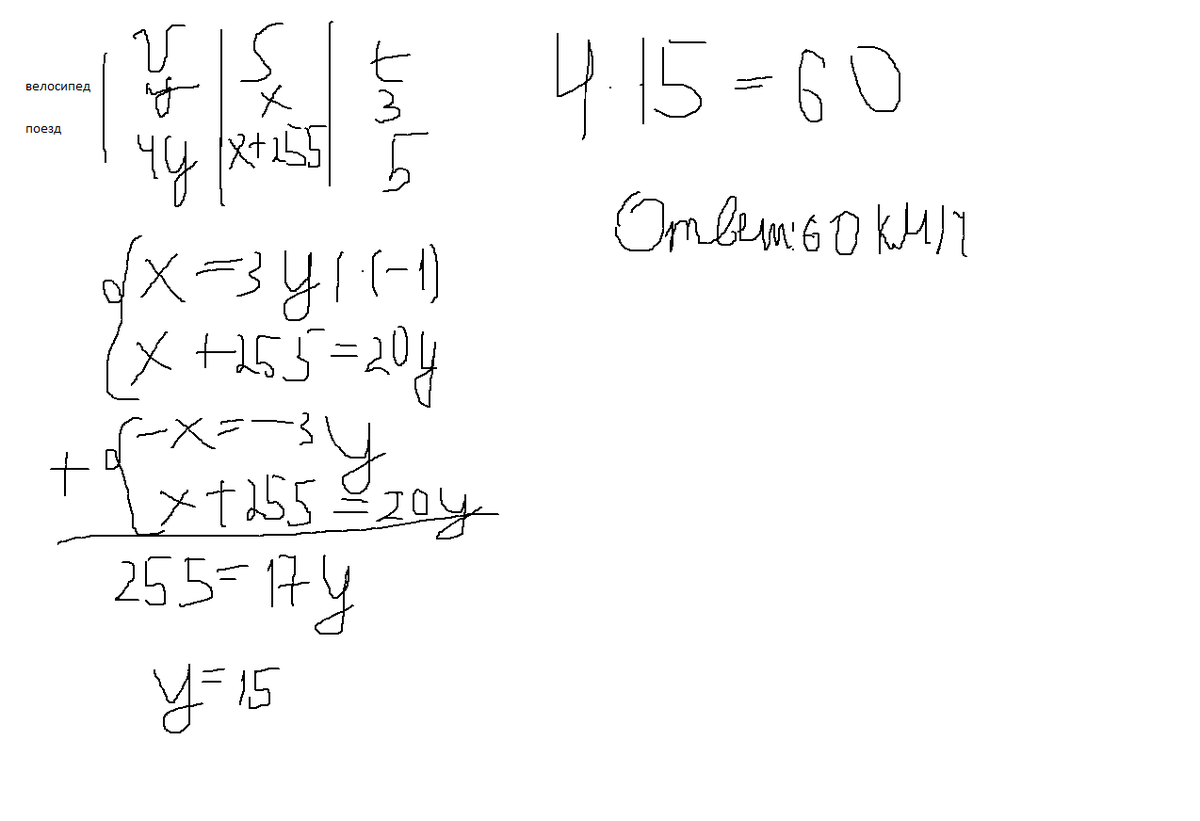 v | S | t
велосипед | y | x | 3
поезд | 4y | x+255 | 5
x = 3y | ·(-1)
x + 255 = 20y
+ -x = -3y
x + 255 = 20y
255 = 17y
y = 15
4 · 15 = 60
Ответ: 60 км/ч